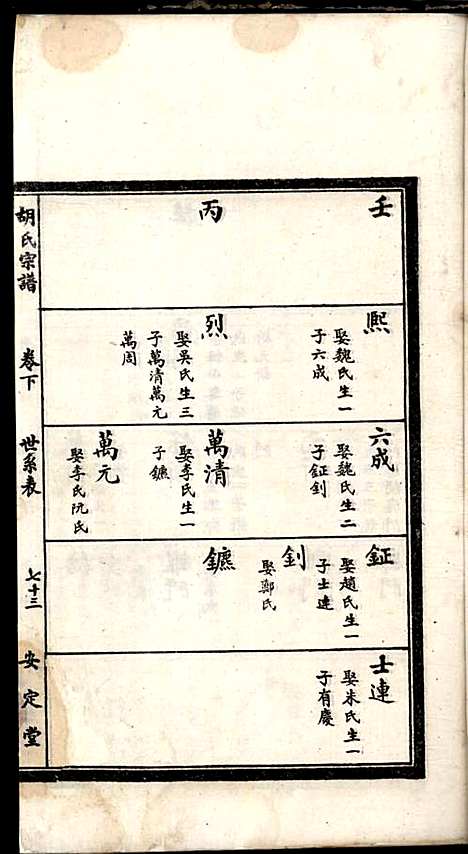 壬
丙
熙
娶魏氏生一
子六成
烈
娶吳氏生三
子萬清萬元
萬周
六成
娶魏氏生二
子鉦釗
萬清
娶李氏生一
子鑣
萬元
娶李氏阮氏
鉦
娶趙氏生一
子士連
釗
娶鄭氏
鑣
士連
娶朱氏生一
子有慶
胡氏宗譜
卷下
世系表
七十三
安定堂